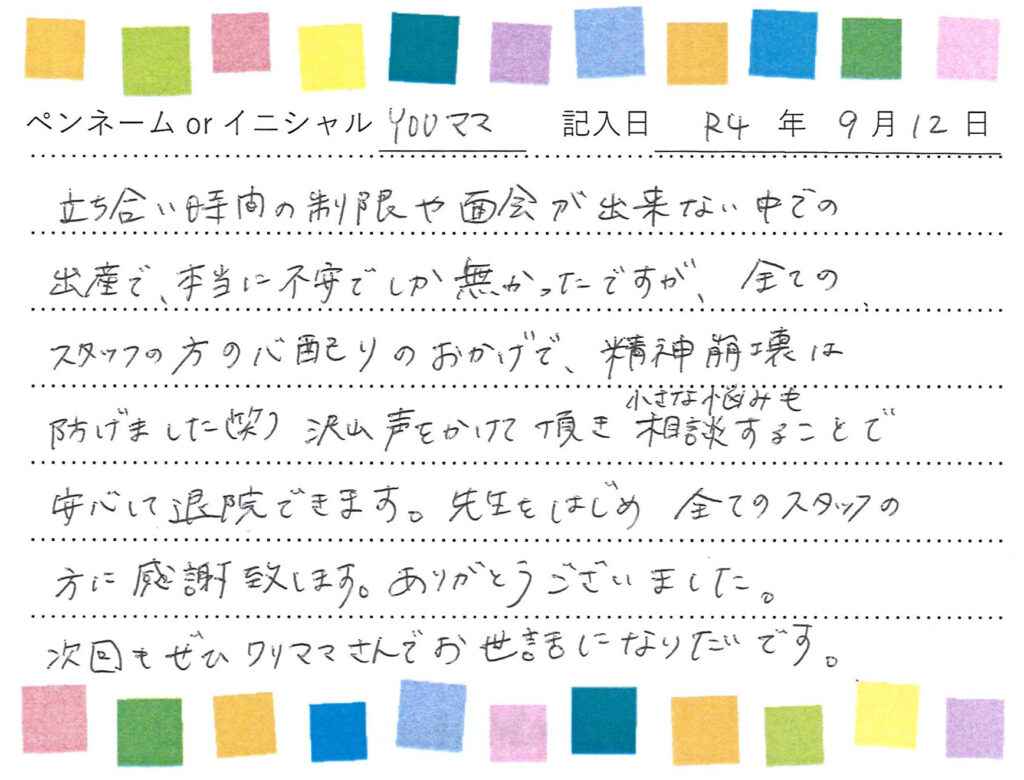 ペンネーム or イニシャル YOUママ 記入日 R4 年 9 月 12 日
立ち合い時間の制限や面会が出来ない中での
出産で、本当に不安でしか無かったですが、全ての
スタッフの方の心配りのおかげで、精神崩壊は
防げました(笑) 沢山声をかけて頂き 小さな悩みも 相談することで
安心して退院できます。先生をはじめ 全てのスタッフの
方に感謝致します。ありがとうございました。
次回もぜひ ワリママさんでお世話になりたいです。